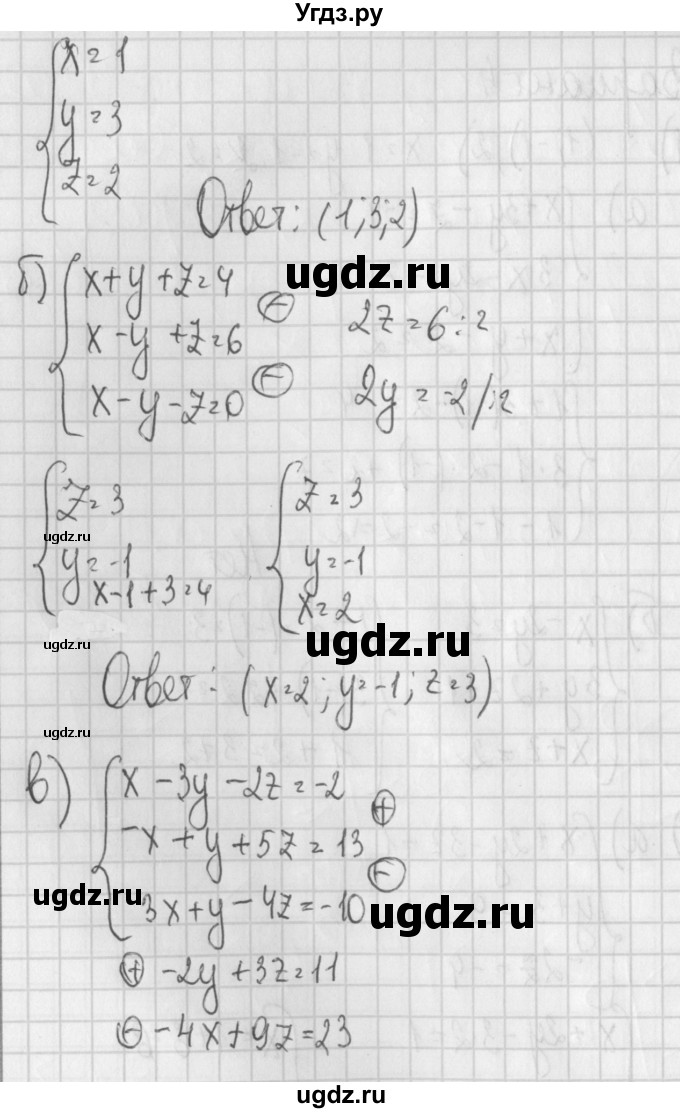 Угдз.ру
x = 1
y = 3
z = 2
Ответ: (1; 3; 2)
ugdz.ru
б) x + y + z = 4
x - y + z = 6
x - y - z = 0
2z = 6 : 2
2y = -2 /: 2
z = 3
y = -1
x - 1 + 3 = 4
ugdz.ru
z = 3
y = -1
x = 2
ugdz.ru
ugdz.ru
Ответ: (x = 2; y = -1; z = 3)
ugdz.ru
в) x - 3y - 2z = -2
-x + y + 5z = 13
3x + y - 4z = -10
ugdz.ru
ugdz.ru
⊕ -2y + 3z = 11
⊖ -4x + 9z = 23
ugdz.ru